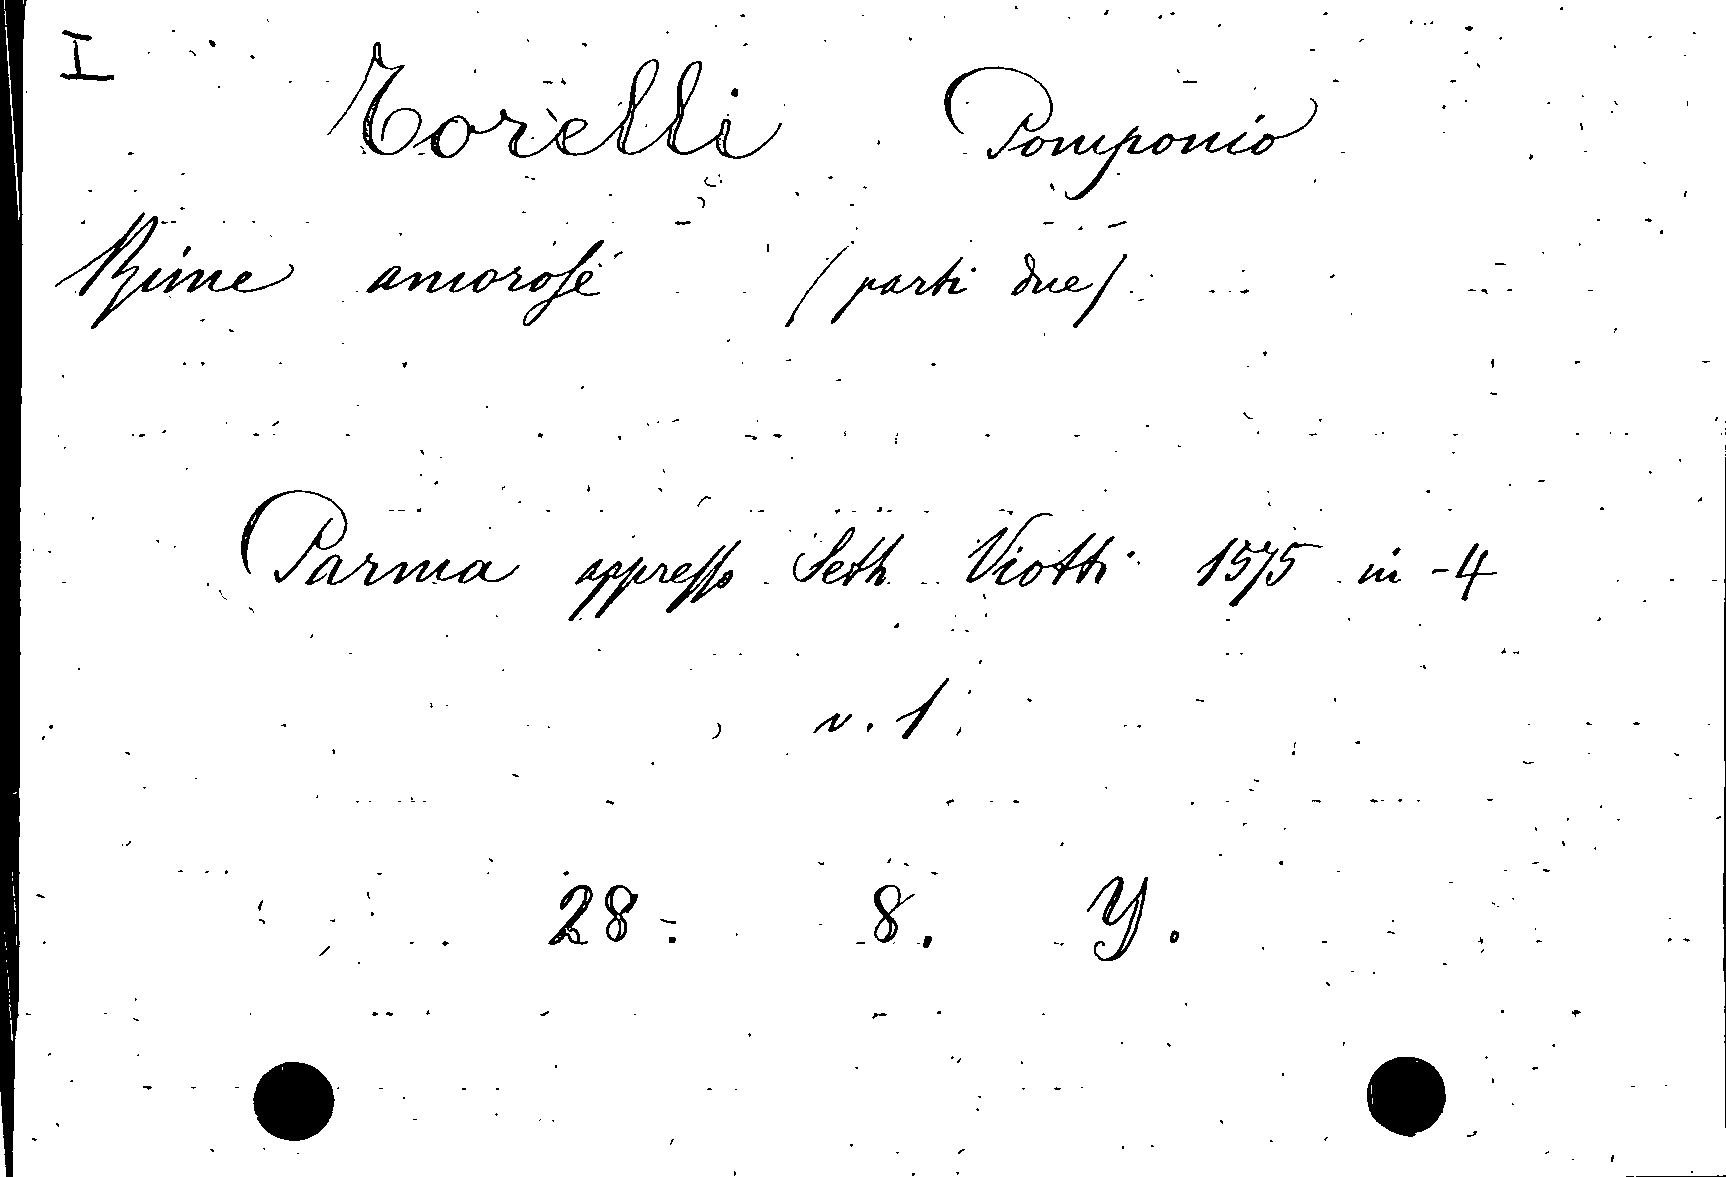 I
Torelli Pomponio
Rime amorose (parti due)
Parma appresso Seth Viotti 1575 in-4
v. 1.
28. 8. Y.